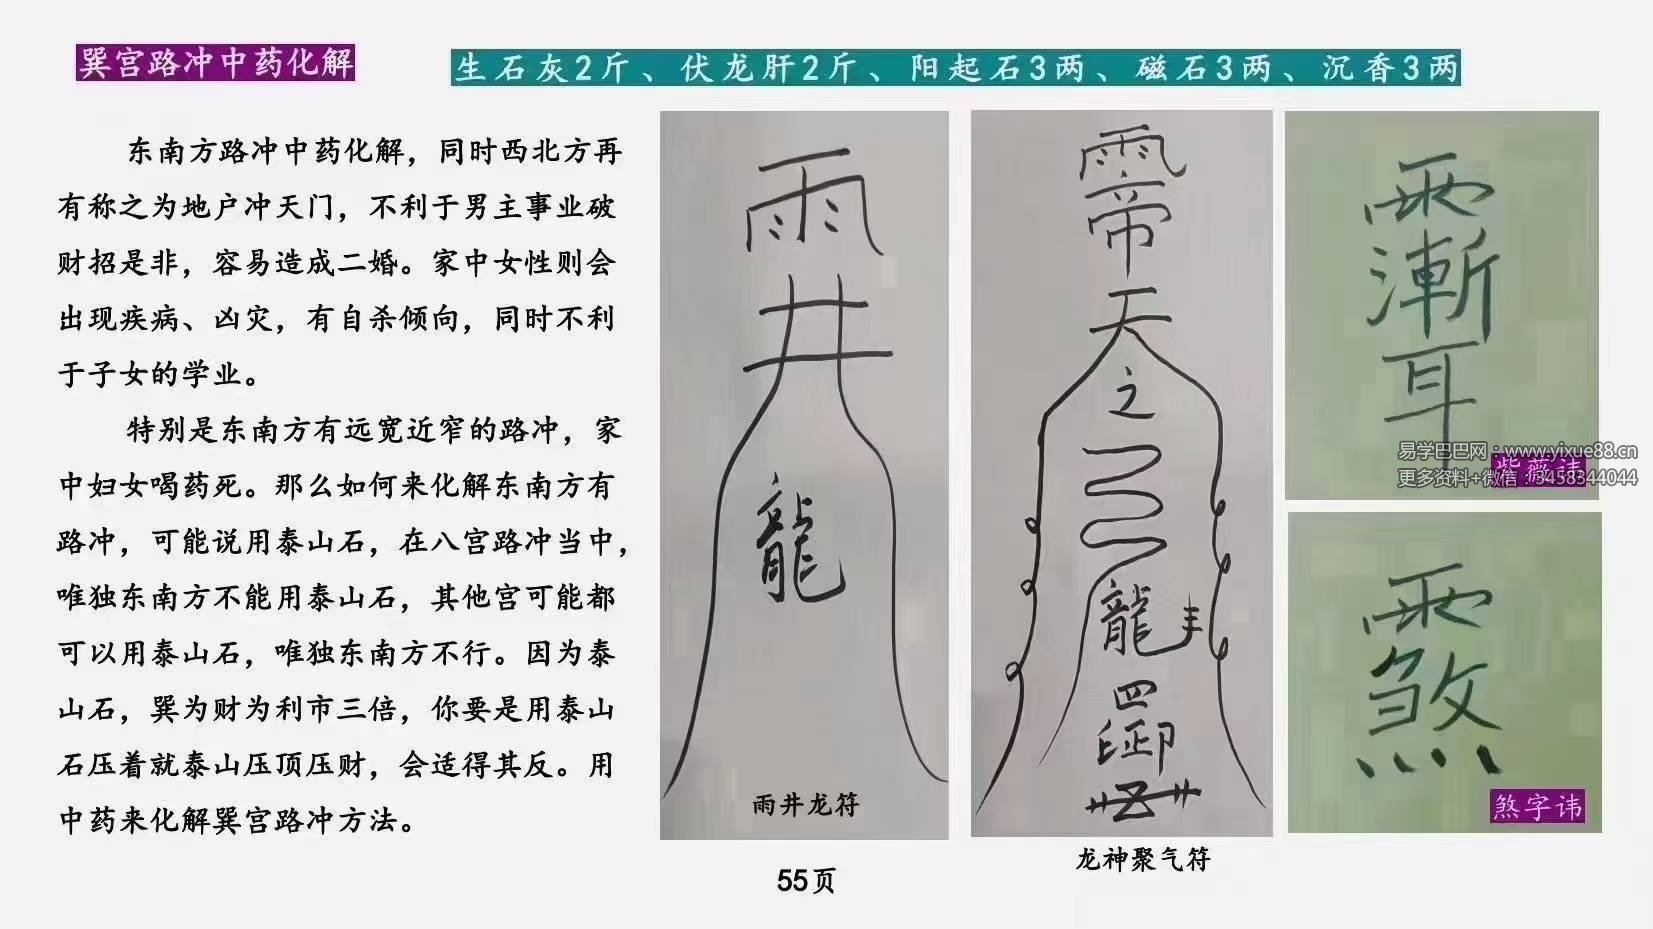 巽宫路冲中药化解
生石灰2斤、伏龙肝2斤、阳起石3两、磁石3两、沉香3两
东南方路冲中药化解，同时西北方再
有称之为地户冲天门，不利于男主事业破
财招是非，容易造成二婚。家中女性则会
出现疾病、凶灾，有自杀倾向，同时不利
于子女的学业。
特别是东南方有远宽近窄的路冲，家
中妇女喝药死。那么如何来化解东南方有
路冲，可能说用泰山石，在八宫路冲当中，
唯独东南方不能用泰山石，其他宫可能都
可以用泰山石，唯独东南方不行。因为泰
山石，巽为财为利市三倍，你要是用泰山
石压着就泰山压顶压财，会适得其反。用
中药来化解巽宫路冲方法。
雨
井
龍
雨井龙符
雨
帝
天
之
龍
四
龙神聚气符
雨
漸
耳
紫薇讳
易学巴巴网：www.yixue88.cn
更多资料+微信：3458344044
雨
煞
煞字讳
55页